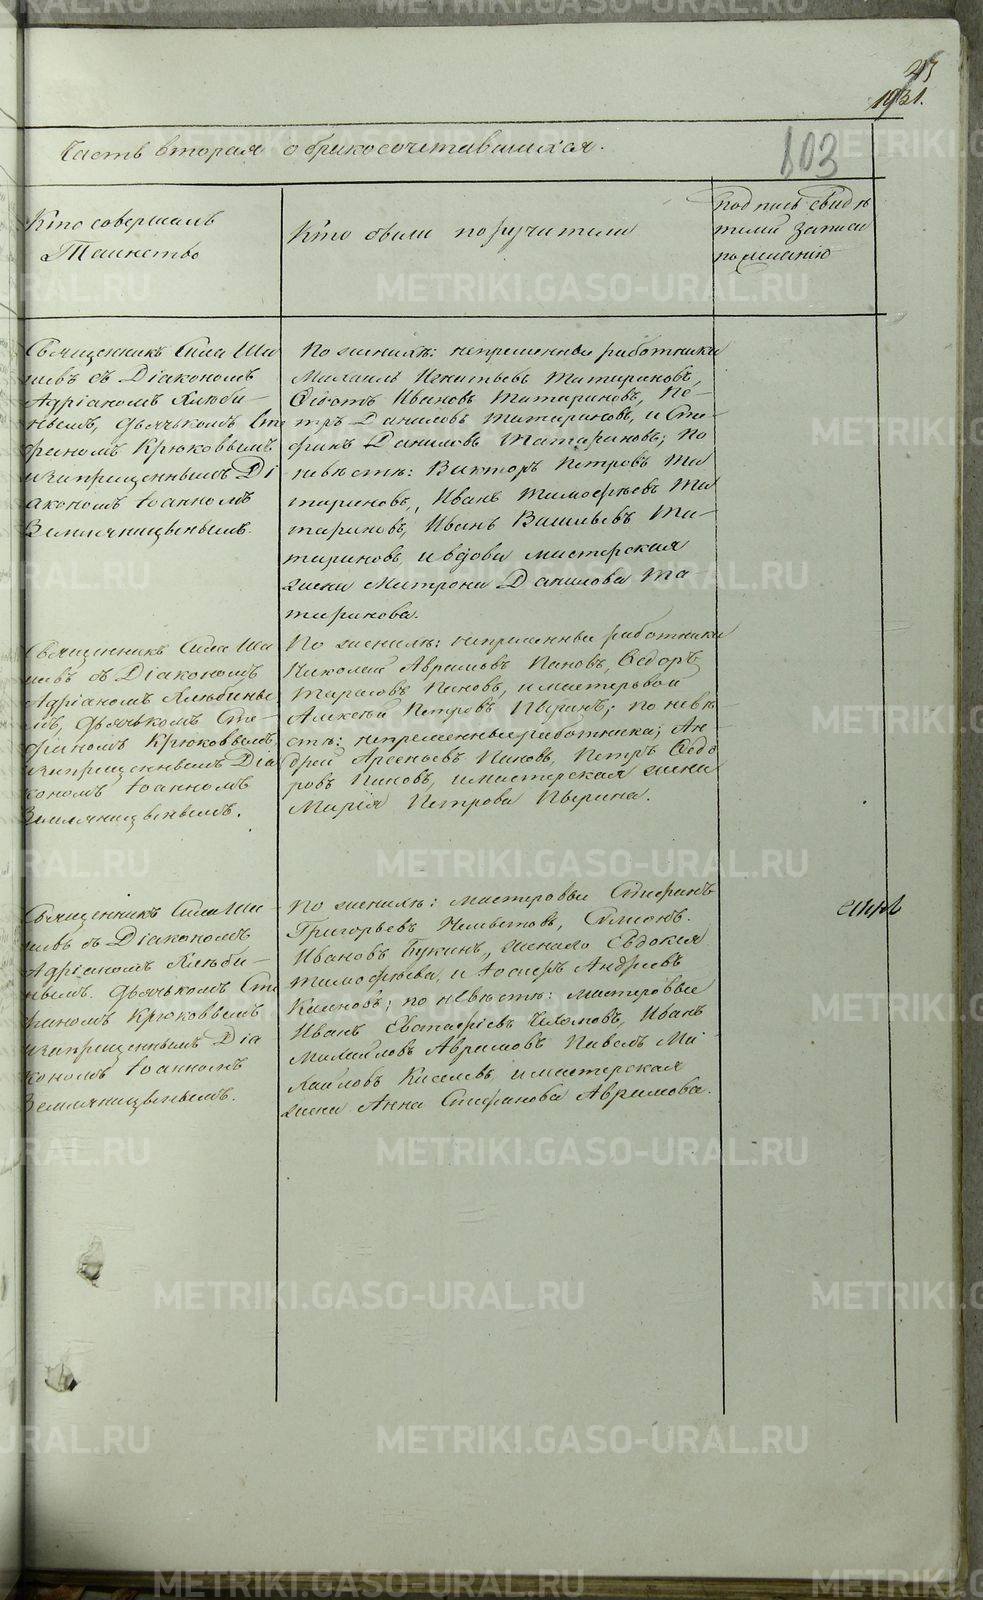 103
Часть вторая о бракосочетавшихся.
Кто совершалъ
Таинство
Кто были поручители
Подпись свидѣ
телей записи
по желанію
Священникъ Сила Ша
въ съ Діакономъ
Адріаномъ Хлѣби-
нымъ, дьячькомъ Сте
фаномъ Крюковымъ
и запрещеннымъ Ді
акономъ Іоанномъ
Земляницынымъ.
По женихѣ: непременные работники
Михаилъ Игнатьевъ Татариновъ,
Ѳедотъ Ивановъ Татариновъ, Пе-
тръ Даниловъ Татариновъ, и Сте
фанъ Даниловъ Татариновъ; по
невѣстѣ: Викторъ Петровъ Та
тариновъ, Иванъ Тимофѣевъ Та
тариновъ, Иванъ Васильевъ Та-
тариновъ, и вдова мастерская
жена Матрона Данилова Та
таринова.
Священникъ Сила Ша
въ съ Діакономъ
Адріаномъ Хлѣбины
мъ, дьячькомъ Сте-
фаномъ Крюковымъ,
и запрещеннымъ Діа
кономъ Іоанномъ
Земляницынымъ.
По женихѣ: непременные работники
Николай Аврамовъ Пановъ, Ѳедоръ
Тарасовъ Пановъ, и мастеровой
Алексѣй Петровъ Пыринъ; по невѣ-
стѣ: непременные работники; Ан
дрей Арсеньевъ Пановъ, Петръ Ѳедо
ровъ Пановъ, и мастерская жена
Марія Петрова Пырина.
Священникъ Сила Ша-
въ съ Діакономъ
Адріаномъ Хлѣби-
нымъ. дьячькомъ Сте
фаномъ Крюковымъ
и запрещеннымъ Діа
кономъ Іоанномъ
Земляницынымъ.
По женихѣ: мастеровые Стефанъ
Григорьевъ, Симіонъ.
Ивановъ Букинъ, жена его Евдокія
Тимофѣева, и Іосифъ Андреевъ
Калиновъ; по невѣстѣ: мастеровые
Иванъ Евстафіевъ, Иванъ
Михайловъ Аврамовъ Павелъ Ми
хайловъ Киселевъ, и мастерская
жена Анна Стефанова Аврамова.
METRIKI.GASO-URAL.RU